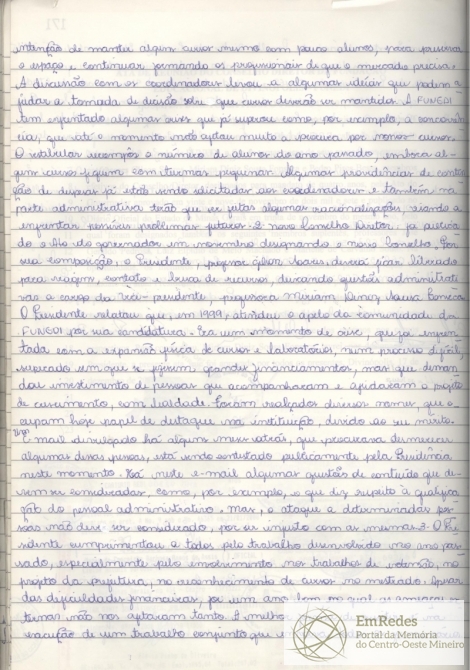 171
intenção de manter algum curso mesmo com pouco alunos, para preservar
o espaço e continuar formando os profissionais de que o mercado precisa.
A discussão com os coordenadores levou a algumas ideias que podem a-
judar a tomada de decisão sobre que cursos deverão ser mantidos. A FUNEDI
tem enfrentado algumas crises que já superou como, por exemplo, a concorrên-
cia, que até o momento não afetou muito a procura por nossos cursos.
O vestibular recompôs o número de alunos do ano passado, embora al-
guns cursos fiquem com turmas pequenas. Algumas providências de conten-
ção de despesas já estão sendo solicitadas aos coordenadores e também na
parte administrativa terão que ser feitas algumas racionalizações, visando a
enfrentar possíveis problemas futuros. 2 novo Conselho Diretor. Já publica-
do o Ato do governador em novembro designando o novo Conselho. Por
sua composição, o Presidente, professor Gilson Soares, deverá ficar liberado
para viagens, contatos e busca de recursos, deixando questões administrati-
vas a cargo da Vice-presidente, professora Miriam
O Presidente relatou que, em 1999, atendeu o apelo da comunidade da
FUNEDI por sua candidatura. Era um momento de crise, que foi enfren-
tada com a expansão física de cursos e laboratórios, num processo difícil,
mercado em que se fizeram grandes financiamentos, mas que deman-
dou envolvimento de pessoas que acompanharam e ajudaram o projeto
de crescimento, com lealdade. Foram realçados diversos nomes, que o-
cupam hoje papel de destaque na instituição, devido ao seu mérito.
E-mail divulgado há alguns meses atrás, que procurava desmerecer
algumas dessas pessoas, está sendo contestado publicamente pela Presidência
neste momento. Há neste e-mail algumas questões de conteúdo que de-
vem ser consideradas, como, por exemplo, o que diz respeito à qualifica-
ção do pessoal administrativo. Mas, o ataque a determinadas pes-
soas não deve ser considerado, por ser injusto com as mesmas. 3. O Pre-
sidente cumprimentou a todos pelo trabalho desenvolvido no ano pas-
sado, especialmente pelo envolvimento nos trabalhos de extensão, no
projeto da prefeitura, no reconhecimento de cursos no mestrado. Apesar
das dificuldades financeiras, foi um ano bom no qual as ameaças ex-
ternas não nos afetaram tanto. A melhor
execução de um trabalho conjunto que
EmRedes
Portal da Memória
do Centro-Oeste Mineiro